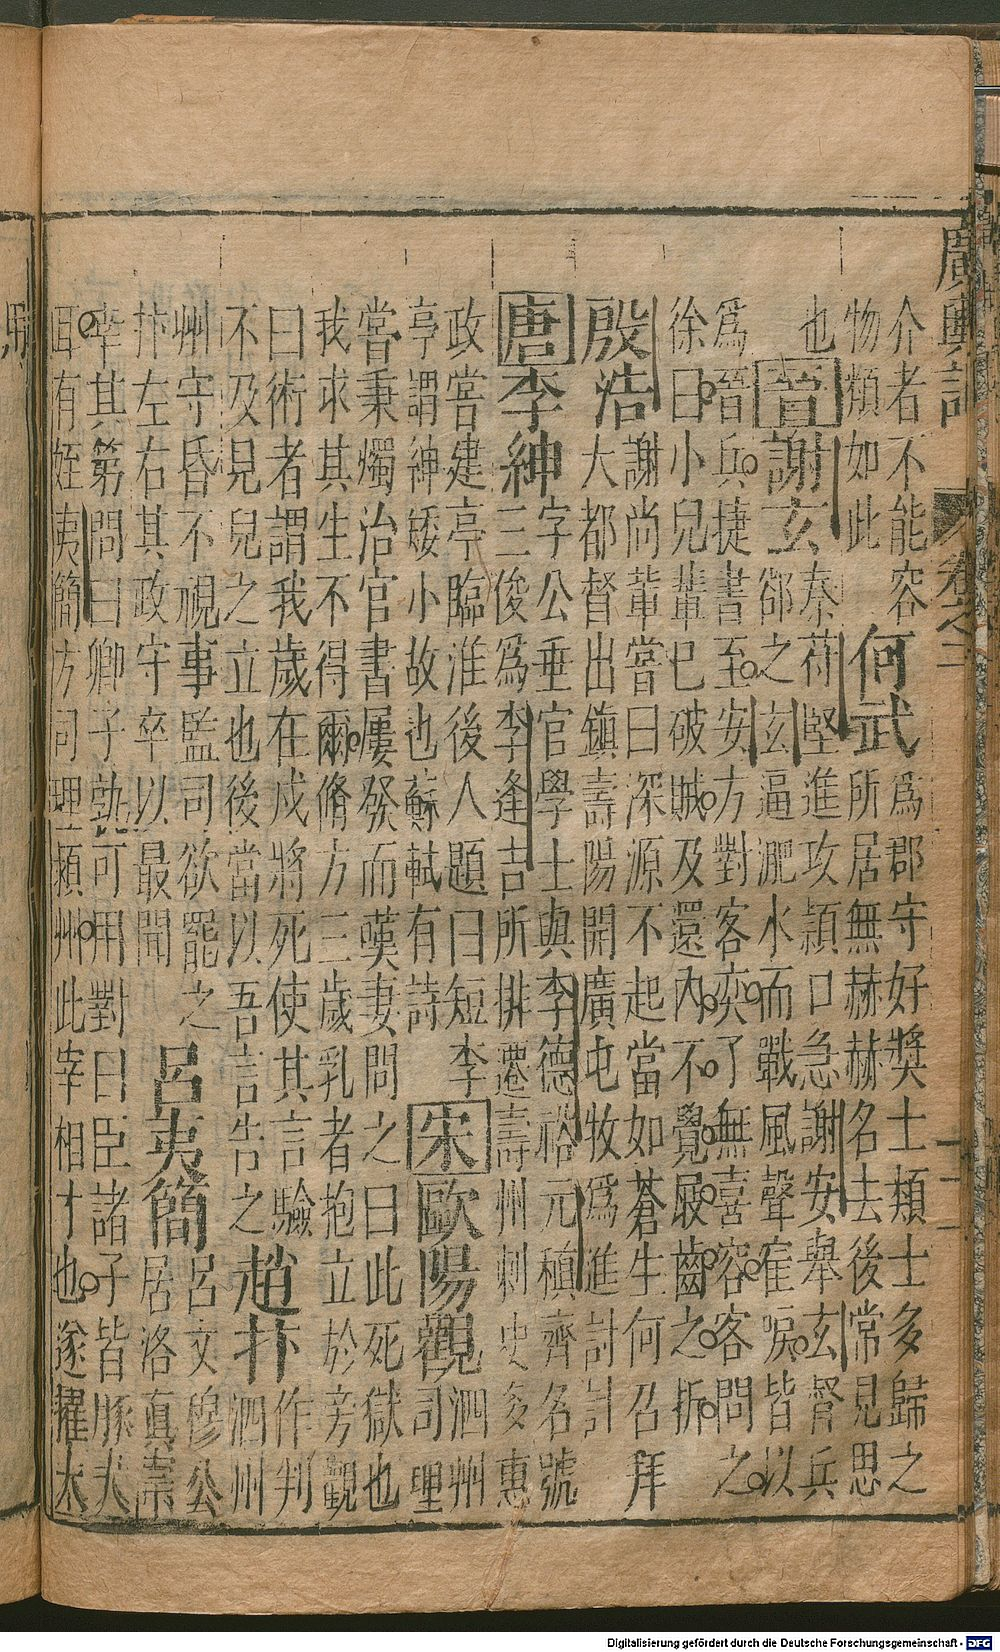 廣輿記 卷之二 十二
介者不能容
物類如此
何武
爲郡守好獎士類士多歸之
所居無赫赫名去後常見思
也
晉謝玄
秦苻堅進攻潁口急謝安舉玄督兵
郤之玄逼淝水而戰風聲隺唳皆以
爲晉兵捷書至安方對客奕了無喜容客問之
徐曰小兒輩已破賊及還內不覺屐齒之折
殷浩
謝尚輩嘗曰深源不起當如蒼生何召拜
大都督出鎮壽陽開廣屯牧爲進討計
唐李紳
字公垂官學士與李德裕元稹齊名號
三俊爲李逢吉所排遷壽州刺史多惠
政嘗建亭臨淮後人題曰短李
亭謂紳矮小故也蘇軾有詩
宋歐陽觀
泗州
司理
嘗秉燭治官書屢發而嘆妻問之曰此死獄也
我求其生不得爾脩方三歲乳者抱立於旁觀
曰術者謂我歲在戍將死使其言驗
不及見兒之立也後當以吾言告之
趙抃
作判
泗州
州守昏不視事監司欲罷之
抃左右其政守卒以最聞
呂夷簡
呂文穆公
居洛眞宗
幸其第問曰卿子孰可用對曰臣諸子皆豚犬
耳有姪夷簡方司理潁州此宰相才也遂擢太
Digitalisierung gefördert durch die Deutsche Forschungsgemeinschaft - DFG